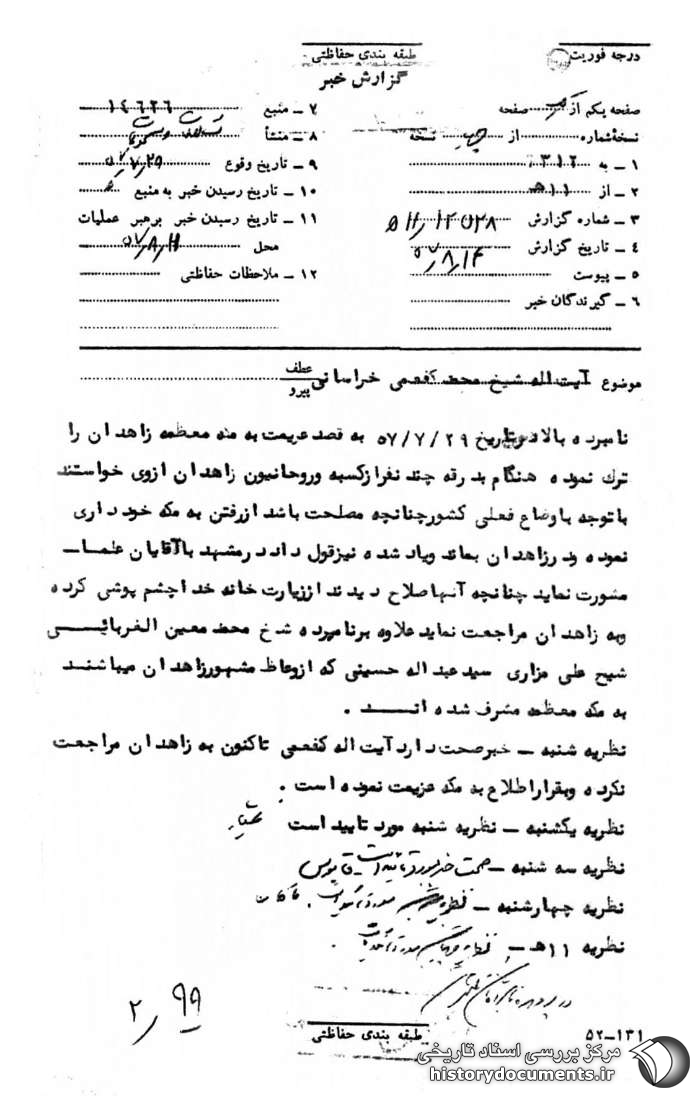 درجه فوریت
طبقه بندی حفاظتی
گزارش خبر
صفحه یکم از صفحه
نسخهٔ شماره از نسخه
۱ ــ به ۳۱۲
۲ ــ از ۱۱هـ
۳ ــ شماره گزارش
۴ ــ تاریخ گزارش ۵۷/۸/۱۴
۵ ــ پیوست
۶ ــ گیرندگان خبر
۷ ــ منبع ۱۴۶۲۶
۸ ــ منشأ
۹ ــ تاریخ وقوع ۵۷/۷/۲۹
۱۰ ــ تاریخ رسیدن خبر به منبع
۱۱ ــ تاریخ رسیدن خبر برهبر عملیات
محل ۵۷/۸/۱۱
۱۲ ــ ملاحظات حفاظتی
موضوع آیت اله شیخ محمد کفعمی خراسانی عطف
پیرو
نامبرده بالا در تاریخ ۵۷/۷/۲۹ به قصد عزیمت به مکه معظمه زاهدان را
ترک نموده هنگام بدرقه چند نفر از کسبه وروحانیون زاهدان ازوی خواستند
با توجه باوضاع فعلی کشور چنانچه مصلحت باشد از رفتن به مکه خود داری
نموده ودر زاهدان بماند ویاد شده نیز قول داد در مشهد با آقایان علمـا ــ
مشورت نماید چنانچه آنها صلاح دیدند از زیارت خانه خدا چشم پوشی کرده
وبه زاهدان مراجعت نماید علاوه برنامبرده شیخ محمد معین الغربائی
شیخ علی مزاری سید عبداله حسینی که از وعاظ مشهور زاهدان میباشند
به مکه معظمه مشرف شده انـد .
نظریه شنبه ــ خبر صحت دارد آیت اله کفعمی تاکنون به زاهدان مراجعت
نکرده وبقرار اطلاع به مکه عزیمت نموده است .
نظریه یکشنبه ــ نظریه شنبه مورد تایید است
نظریه سه شنبه ــ صحت خبر مورد تائید است
نظریه چهارشنبه ــ نظریه سه شنبه مورد تأیید است
نظریه ۱۱هـ ــ نظریه چهارشنبه مورد تأیید است
۲٫۹۹
طبقه بندی حفاظتی
۵۲ــ۱۳۱
مرکز بررسی اسناد تاریخی
historydocuments.ir